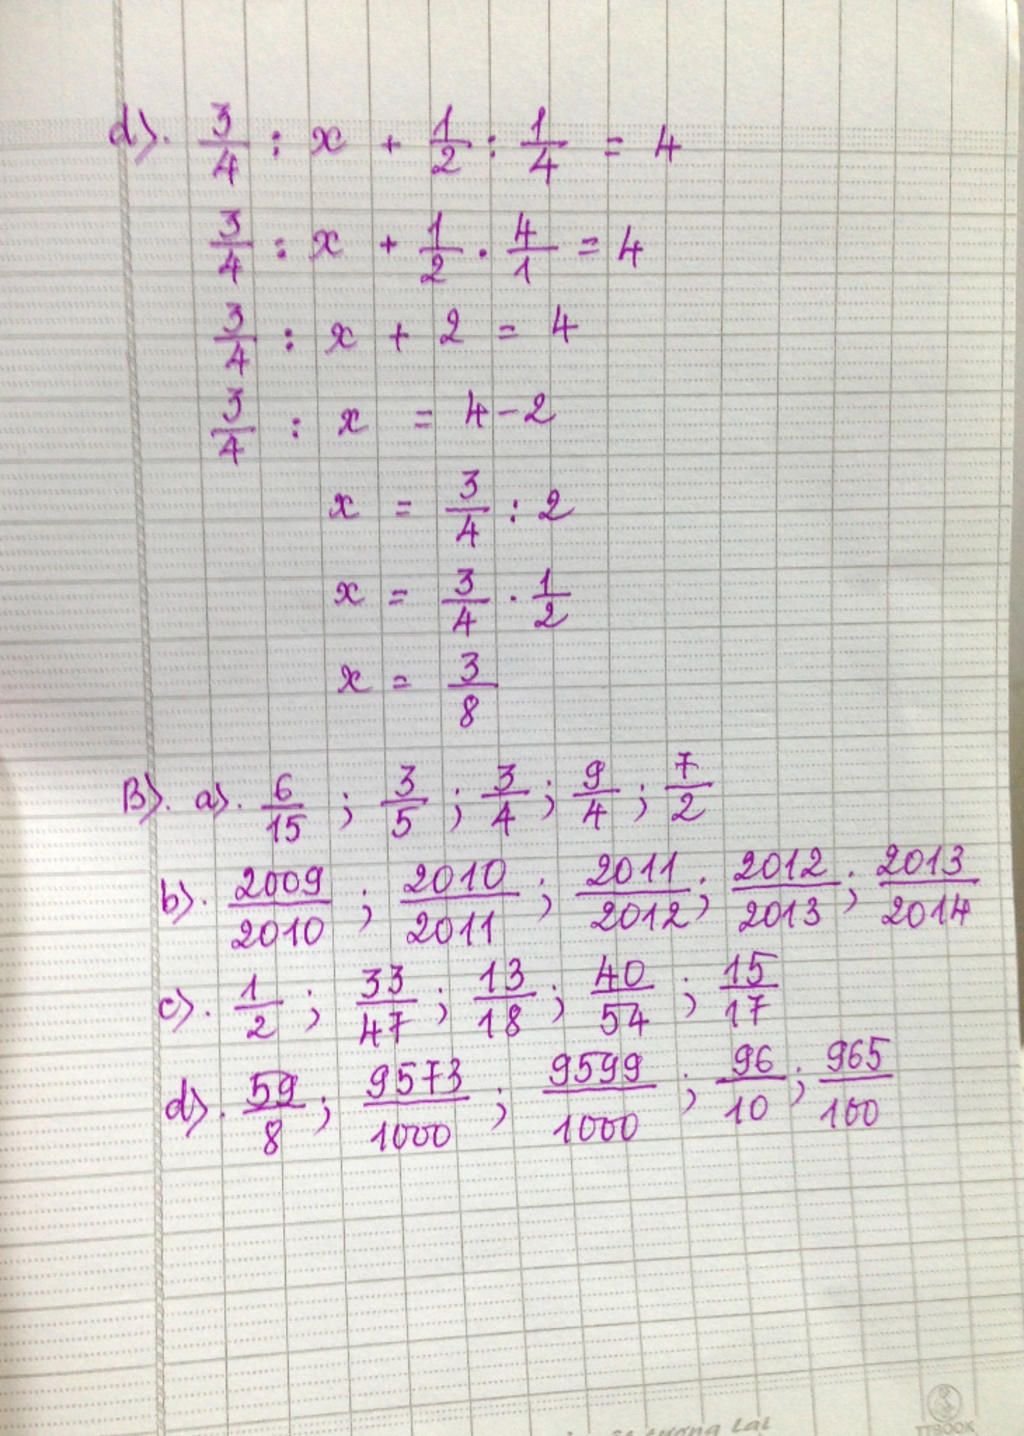 d). 3/4 : x + 1/2 : 1/4 = 4
3/4 : x + 1/2 . 4/1 = 4
3/4 : x + 2 = 4
3/4 : x = 4 - 2
x = 3/4 : 2
x = 3/4 . 1/2
x = 3/8
B). a). 6/15 ; 3/5 ; 3/4 ; 9/4 ; 7/2
b). 2009/2010 ; 2010/2011 ; 2011/2012 ; 2012/2013 ; 2013/2014
c). 1/2 ; 33/47 ; 13/18 ; 40/54 ; 15/17
d). 59/8 ; 9573/1000 ; 9599/1000 ; 96/10 ; 965/100
tương lai
TTBOOK